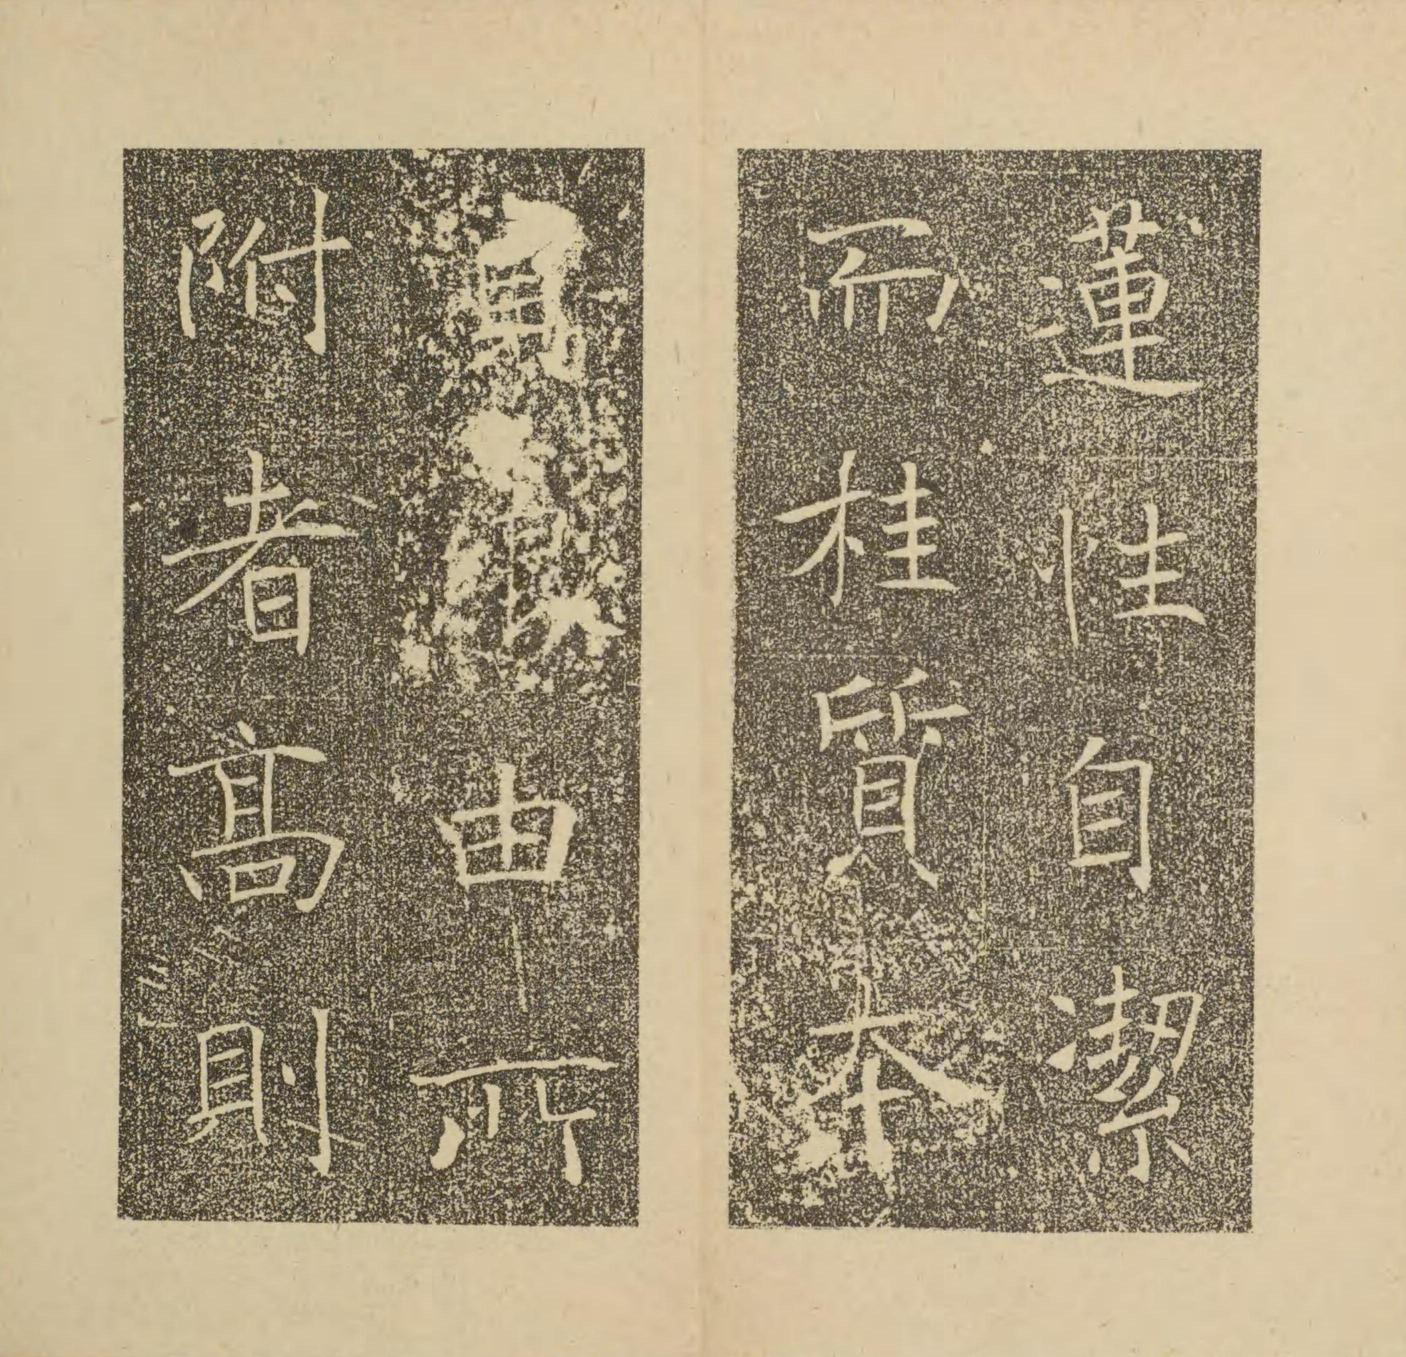 蓮性自潔
而桂質本
貞良由所
附者高則